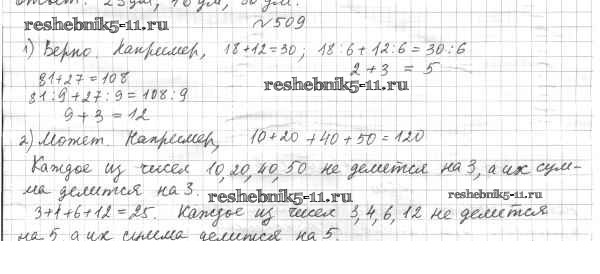 Ответ: 25 дм, 10 дм, 50 дм.
reshebnik5-11.ru
№509
1) Верно. Например, 18+12=30; 18:6+12:6=30:6
2+3 = 5
81+27=108
reshebnik5-11.ru
81:9+27:9=108:9
9+3=12
2) Может. Например, 10+20+40+50=120
Каждое из чисел 10,20,40,50 не делится на 3, а их сум-
ма делится на 3.
reshebnik5-11.ru
reshebnik5-11.ru
3+4+6+12=25. Каждое из чисел 3,4,6,12 не делится
на 5 а их сумма делится на 5.